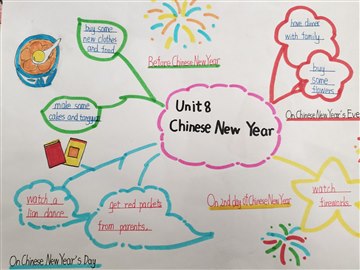 buy some
new clothes
and food
Before Chinese New Year
have dinner
with family
buy
some
flowers
On Chinese New Year's Eve
make some
cakes and tangyuan
Unit 8
Chinese New Year
watch a
lion dance
get red packets
from parents.
On Chinese New Year's Day
On 2nd day of Chinese New Year
watch
fireworks